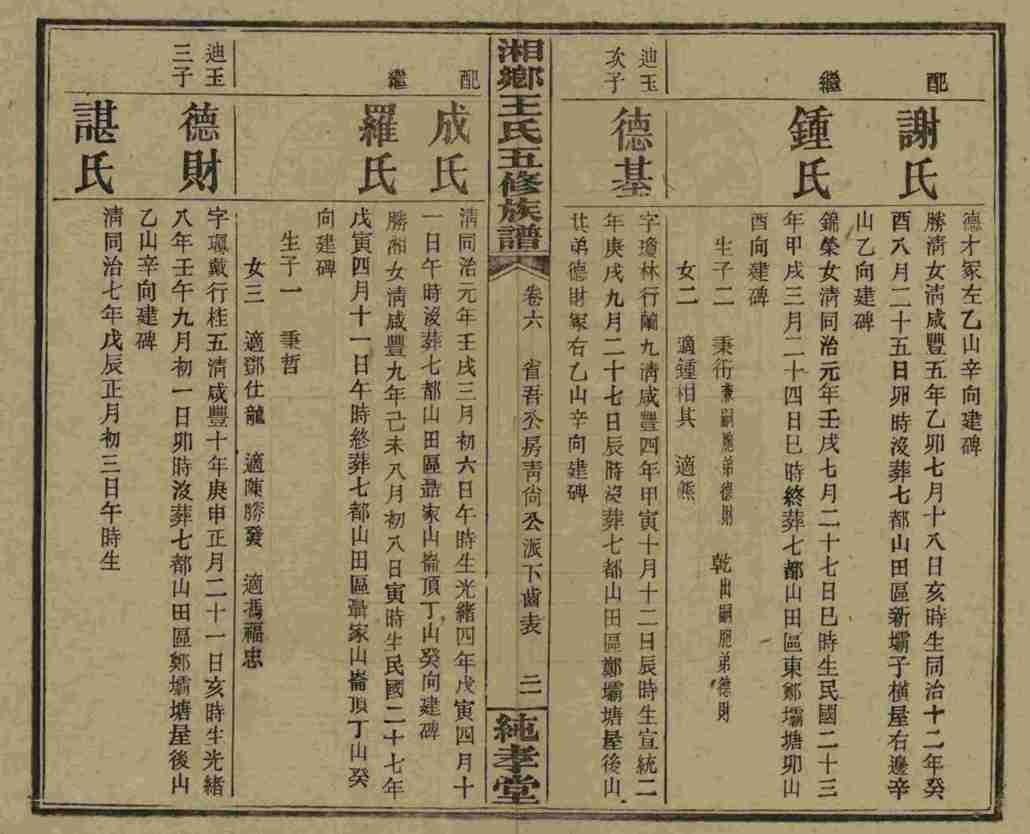 德才冢左乙山辛向建碑
配
謝氏
勝淸女淸咸豐五年乙卯七月十八日亥時生同治十二年癸
酉八月二十五日卯時沒葬七都山田區新壩子橫屋右邊辛
山乙向建碑
繼
鍾氏
錦榮女淸同治元年壬戌七月二十七日巳時生民國二十三
年甲戌三月二十四日巳時終葬七都山田區東鄭壩塘卯山
酉向建碑
生子二 秉衍兼嗣胞弟德財 乾出嗣胞弟德財
女二 適鍾相其 適熊
迪玉
次子
德基
字瓊林行蘭九淸咸豐四年甲寅十月十二日辰時生宣統二
年庚戌九月二十七日辰時沒葬七都山田區鄭壩塘屋後山
其弟德財冢右乙山辛向建碑
湘鄉王氏五修族譜
卷六 省吾公房靑尙公派下齒表 二
純孝堂
配
成氏
淸同治元年壬戌三月初六日午時生光緒四年戊寅四月十
一日午時沒葬七都山田區家山崙頂丁山癸向建碑
繼
羅氏
勝湘女淸咸豐九年己未八月初八日寅時生民國二十七年
戊寅四月十一日午時終葬七都山田區家山崙頂丁山癸
向建碑
生子一 秉哲
女三 適鄧仕龍 適陳勝發 適馮福忠
迪玉
三子
德財
字戴行桂五淸咸豐十年庚申正月二十一日亥時生光緒
八年壬午九月初一日卯時沒葬七都山田區鄭壩塘屋後山
乙山辛向建碑
諶氏
淸同治七年戊辰正月初三日午時生